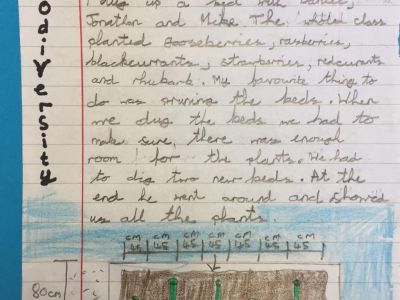 I dug up a bed with Daniel,
Jonathan and Mike. The whole class
planted Gooseberries, rasberries,
blackcurrants, strarberries, redcurrants
and rhubarb. My favourite thing to
do was pruning the beds. When
we dug the beds we had to
make sure, there was enough
room for the plants. We had
to dig two new beds. At the
end he went around and showed
us all the plants.
odiversity
cm cm cm cm cm cm
45 45 45 45 45 45
80cm